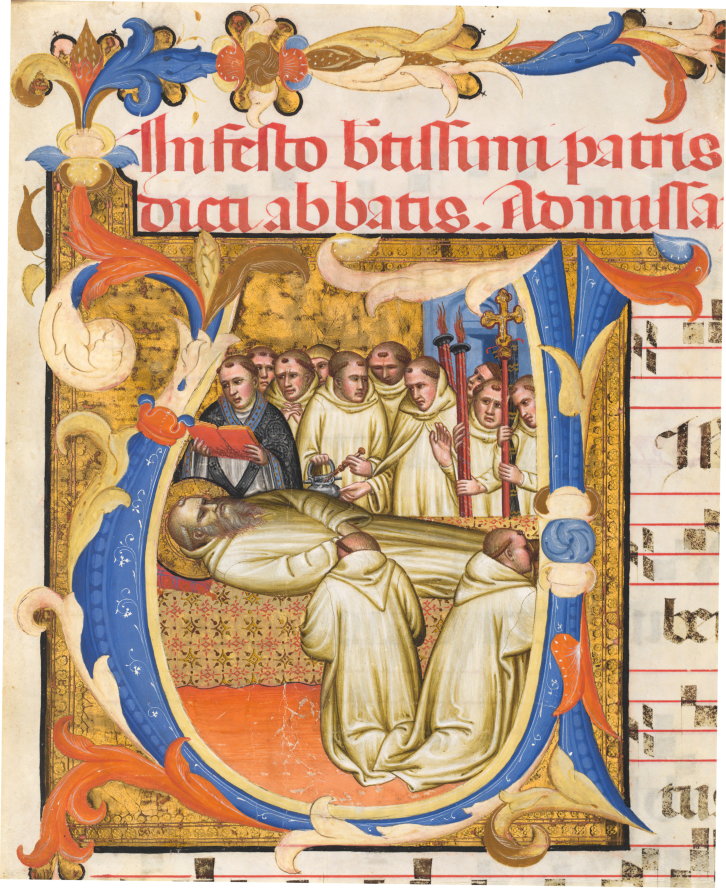 In festo btissimi patris
dicti abbatis. Ad missa
be
tu